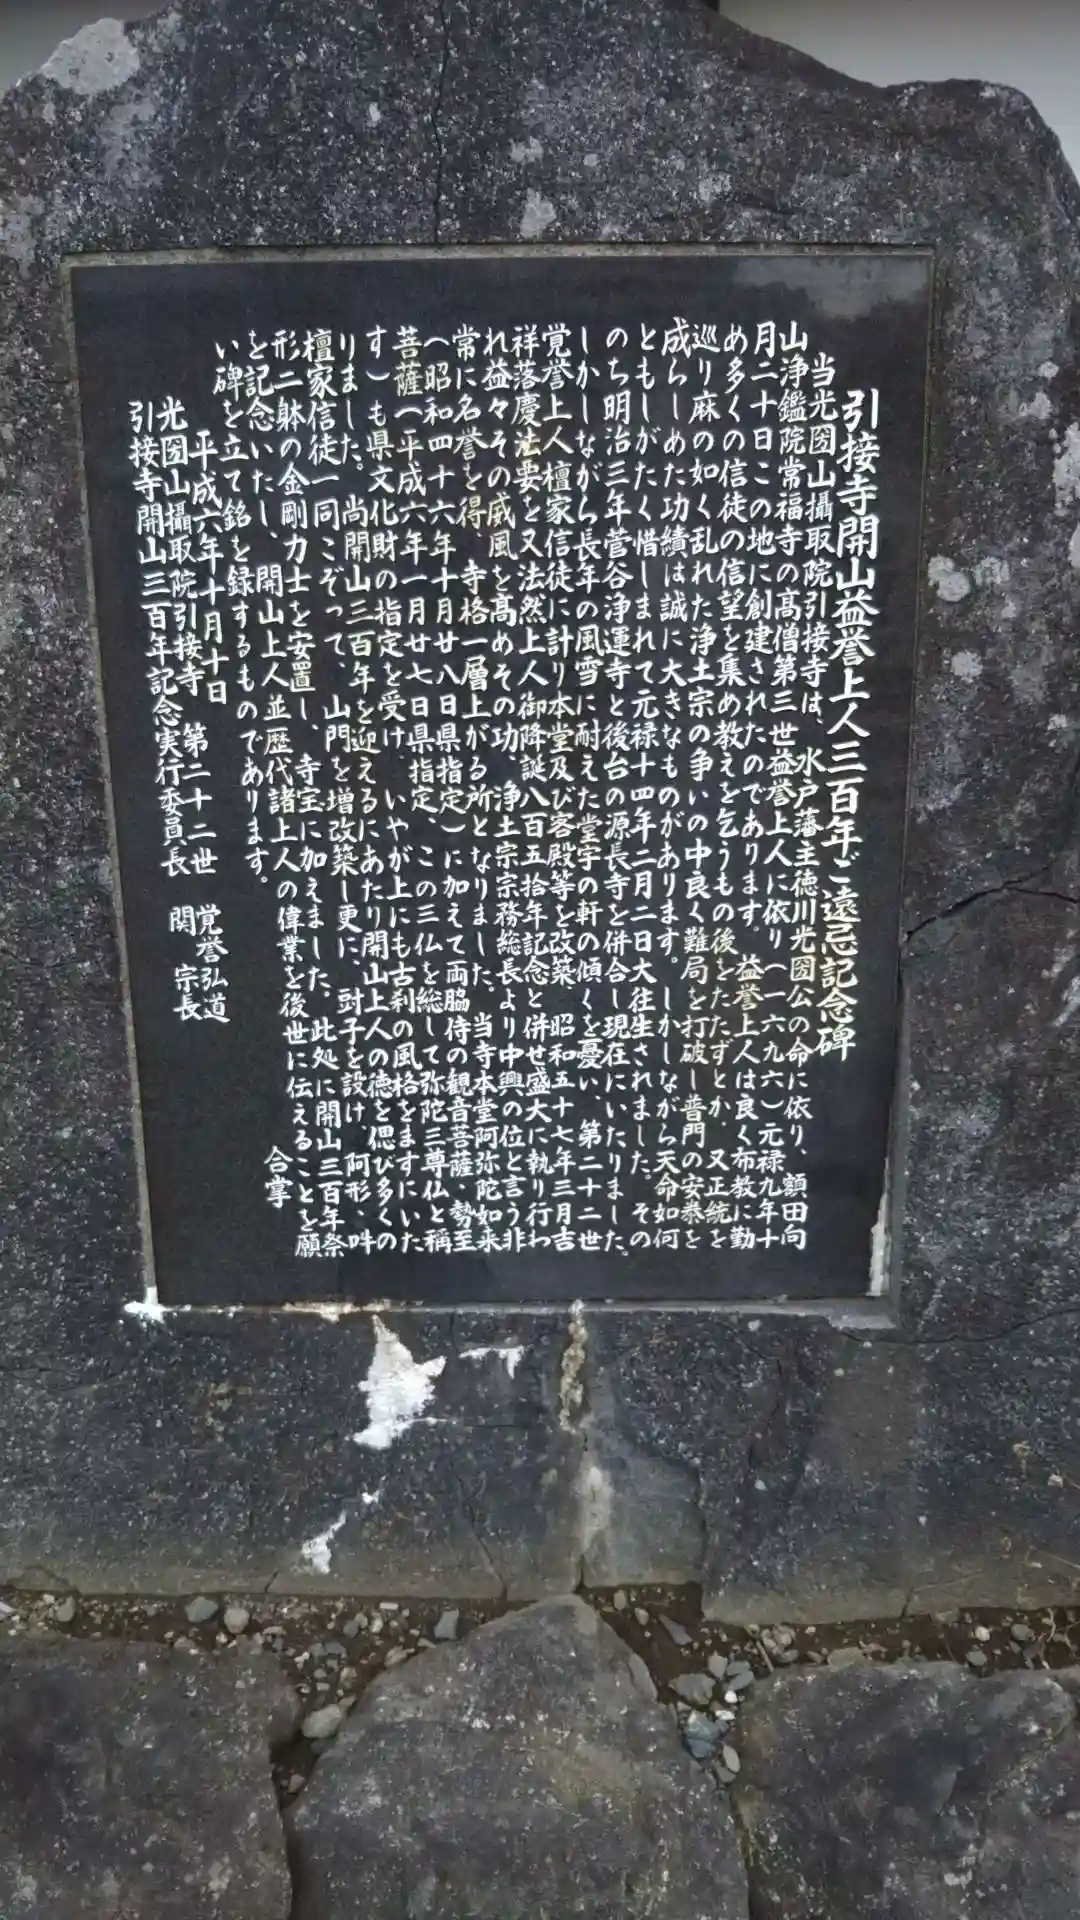 引接寺開山益誉上人三百年ご遠忌記念碑
当光圀山攝取院引接寺は、水戸藩主徳川光圀公の命に依り、額田向
山浄鑑院常福寺の高僧第三世益誉上人に依り(一六九六)元禄九年十
月二十日この地に創建されたのであります。益誉上人は良く布教に勤
め多くの信徒の信望を集め教えを乞うもの後をたたずとか、又正統を
巡り麻の如く乱れた浄土宗の争いの中良く難局を打破し普門の安泰を
成らしめた功績は誠に大きなものがあります。しかしながら天命如何
ともしがたく惜しまれて元禄十四年二月二日大往生されました。その
のち明治三年菅谷浄運寺と後台の源長寺を併合し現在にいたりました。
しかしながら長年の風雪に耐えた堂宇の軒の傾くを憂い、第二十二世
覚誉上人檀家信徒に計り本堂及び客殿等を改築、昭和五十七年三月吉
祥落慶法要と又法然上人御降誕八百五拾年記念と併せ盛大に執り行わ
れ益々その威風を高めその功、浄土宗宗務総長より中興の位と言う非
常に名誉を得、寺格一層上がる所となりました。当寺本堂阿弥陀如来
(昭和四十六年十月廿八日県指定)に加えて両脇侍の観音菩薩、勢至
菩薩(平成六年一月廿七日県指定、この三仏を総して弥陀三尊仏と稱
す)も県文化財の指定を受け、いやが上にも古刹の風格をますにいた
りました。尚開山三百年を迎えるにあたり開山上人の徳を偲び多くの
檀家信徒一同こぞって、山門を増改築し更に、厨子を設け、阿形、吽
形二躰の金剛力士を安置し、寺宝に加えました。此処に開山三百年祭
を記念いたし、開山上人並歴代諸上人の偉業を後世に伝えることを願
い碑を立て銘を録するものであります。
合掌
平成六年十月十日
光圀山攝取院引接寺 第二十二世 覚誉弘道
引接寺開山三百年記念実行委員長 関 宗長